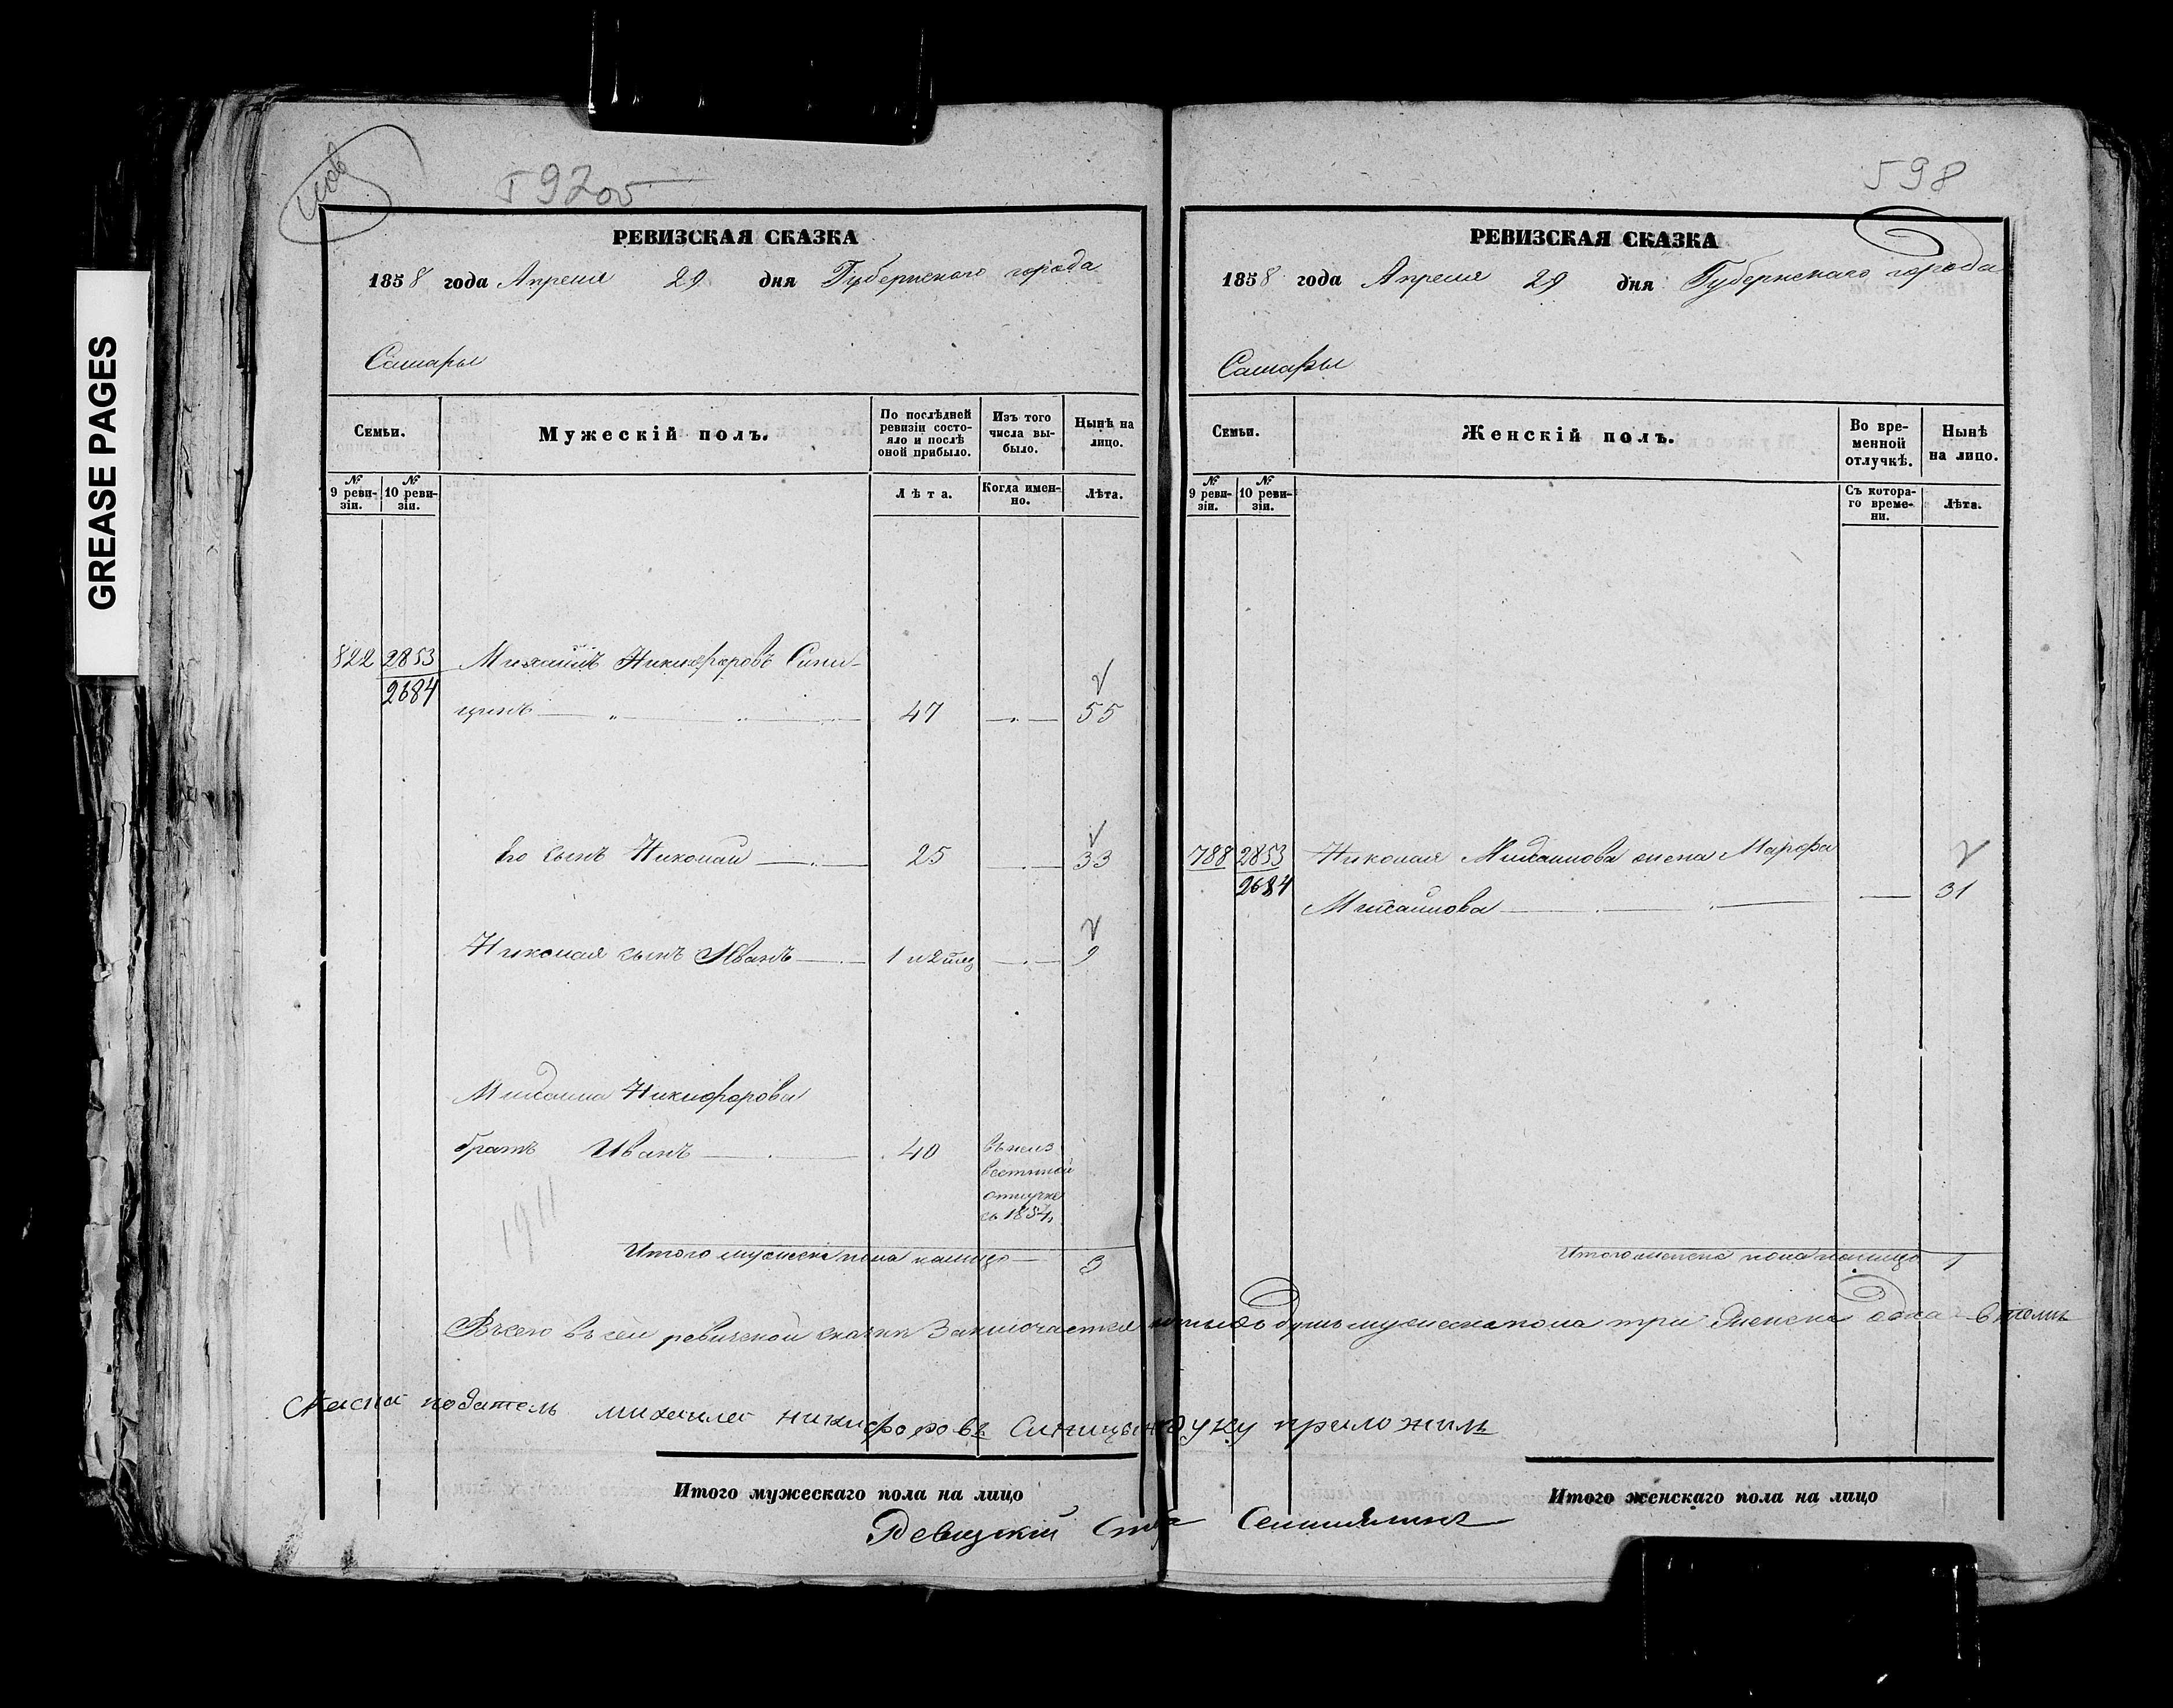 GREASE PAGES
597 об
РЕВИЗСКАЯ СКАЗКА
1858 года Апреля 29 дня Губернскаго города
Самары
Семьи.
Мужескій полъ.
По послѣдней ревизіи состояло и послѣ оной прибыло.
Изъ того числа выбыло.
Нынѣ на лицо.
№ 9 ревизіи.
№ 10 ревизіи.
Лѣта.
Когда именно.
Лѣта.
822 2853 Михаилъ Никифоровъ Сини-
2684
цынъ 47 55
Его сынъ Николай 25 33
Николая сынъ Иванъ 1 и 2 мец 9
Михаила Никифорова
братъ Иванъ 40 въ неиз
вестной
отлучке
съ 1854
1911
Итого мужеска пола налицо 3
598
РЕВИЗСКАЯ СКАЗКА
1858 года Апреля 29 дня Губернскаго города
Самары
Семьи.
Женскій полъ.
Во временной отлучкѣ.
Нынѣ на лицо.
№ 9 ревизіи.
№ 10 ревизіи.
Съ котораго времени.
Лѣта.
788 2853 Николая Михаилова жена Марфа
2684
Михаилова 31
Итого женска пола налицо 1
Всего въ сей ревизской сказки заключается душъ мужеска пола три женска одна
податель михаилъ никифоровъ Синицын руку приложилъ
Итого мужескаго пола на лицо
Итого женскаго пола на лицо
Ревизкій